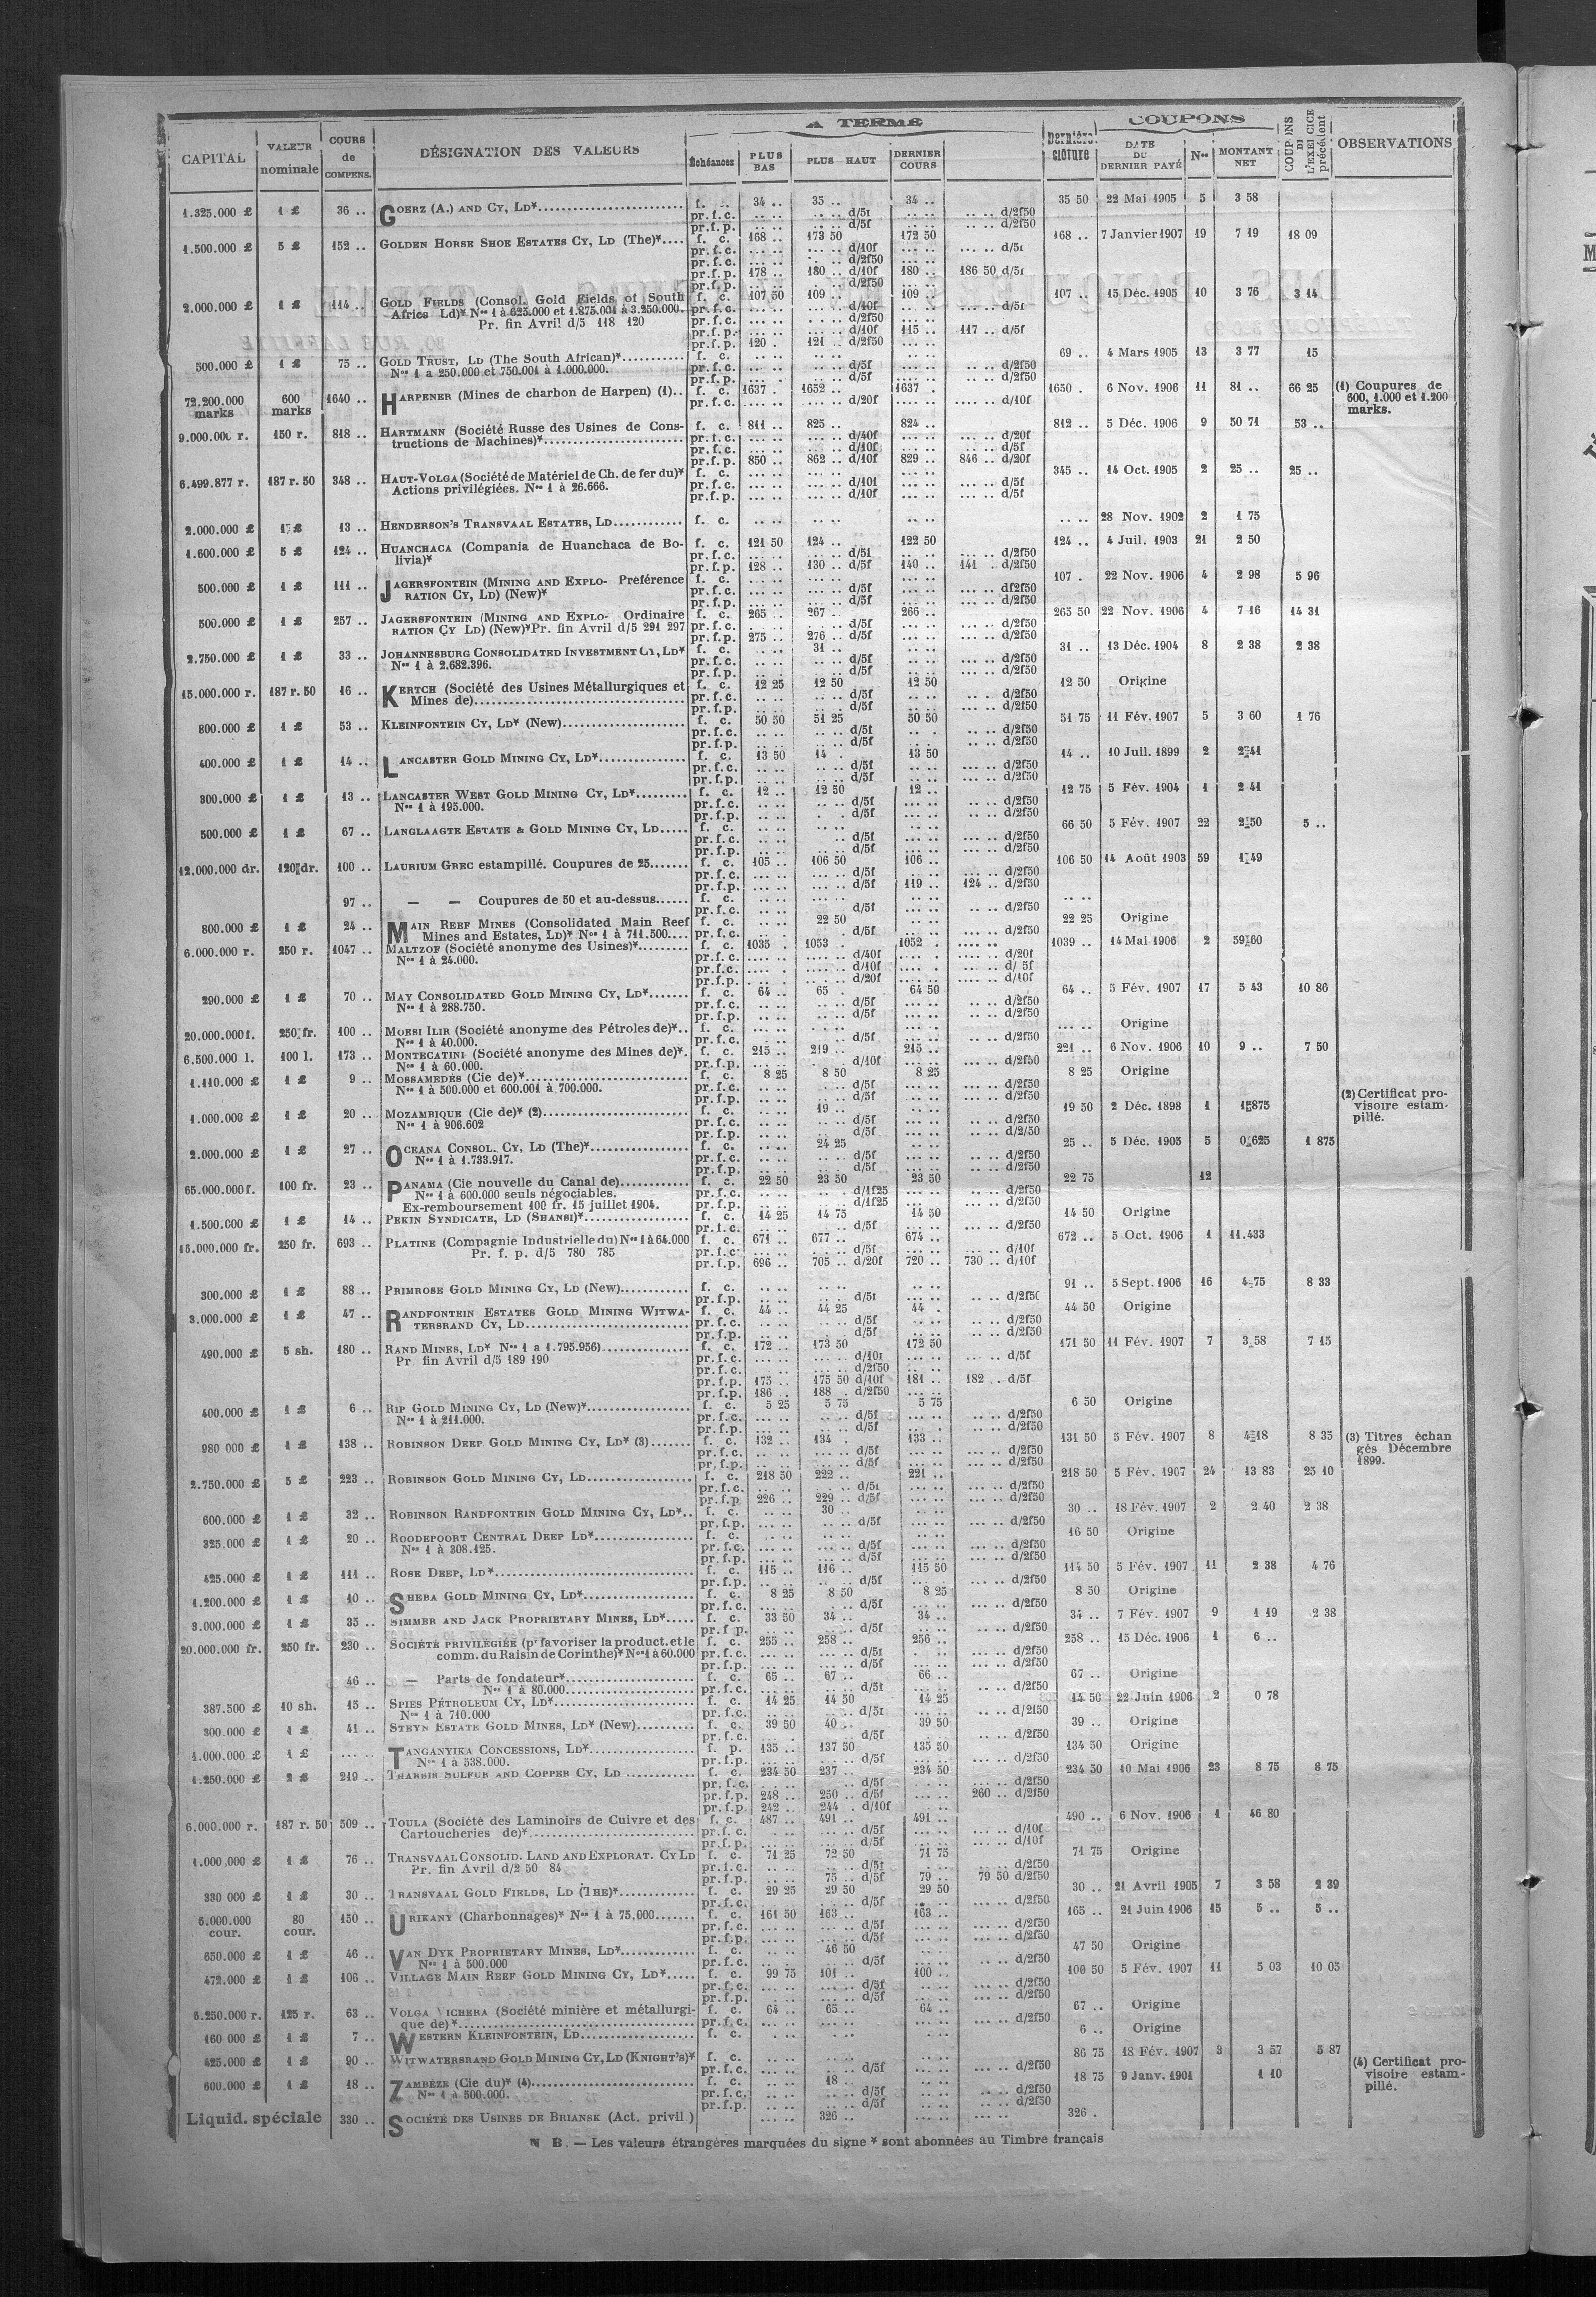 A TERME
COUPONS
CAPITAL VALEUR nominale COURS de COMPENS. DÉSIGNATION DES VALEURS Échéances PLUS BAS PLUS HAUT DERNIER COURS Dernière clôture DATE DU DERNIER PAYÉ Nos MONTANT NET COUPONS DE L'EXERCICE précédent OBSERVATIONS
1.325.000 £ 1 £ 36 .. GOERZ (A.) AND CY, LD* f. .. 34 .. 35 .. 34 .. 35 50 22 Mai 1905 5 3 58
1.500.000 £ 5 £ 152 .. GOLDEN HORSE SHOE ESTATES CY, LD (The)* f. c. 168 .. 173 50 172 50 168 .. 7 Janvier 1907 19 7 19 18 09
pr.f.p. 178 .. 180 .. d/10f 180 .. 186 50 d/5f
2.000.000 £ 1 £ 114 .. GOLD FIELDS (Consol. Gold Fields of South f. c. 107 50 109 .. 109 .. 107 .. 15 Déc. 1905 10 3 76 3 14
Africa Ld)* Nos 1 à 625.000 et 1.875.001 à 3.250.000.
Pr. fin Avril d/5 118 120
pr.f.p. .. d/10f 115 .. 117 .. d/5f
pr.f.p. 120 . 121 .. d/2f50
500.000 £ 1 £ 75 .. GOLD TRUST, LD (The South African)* f. c. 69 .. 4 Mars 1905 13 3 77 15
Nos 1 a 250.000 et 750.001 à 1.000.000.
72.200.000 marks 600 marks 1640 .. HARPENER (Mines de charbon de Harpen) (1).. f. c. 1637 . 1652 .. 1637 . 1650 . 6 Nov. 1906 11 81 .. 66 25 (1) Coupures de 600, 1.000 et 1.200 marks.
pr.f.c. d/20f d/10f
9.000.000 r. 150 r. 818 .. HARTMANN (Société Russe des Usines de Cons- f. c. 811 .. 825 .. 824 .. 812 .. 5 Déc. 1906 9 50 71 53 ..
tructions de Machines)*
pr.f.p. 850 .. 862 .. d/10f 829 .. 846 .. d/20f
6.499.877 r. 187 r. 50 348 .. HAUT-VOLGA (Société de Matériel de Ch. de fer du)* f. c. 345 .. 14 Oct. 1905 2 25 .. 25 ..
Actions privilégiées. Nos 1 à 26.666.
2.000.000 £ 1 £ 13 .. HENDERSON'S TRANSVAAL ESTATES, LD f. c. 28 Nov. 1902 2 1 75
1.600.000 £ 5 £ 124 .. HUANCHACA (Compania de Huanchaca de Bo- f. c. 121 50 124 .. 122 50 124 .. 4 Juil. 1903 21 2 50
livia)*
pr.f.p. 128 .. 130 .. d/5f 140 .. 141 . d/2f50
500.000 £ 1 £ 111 .. JAGERSFONTEIN (MINING AND EXPLO- Préférence f. c. 107 . 22 Nov. 1906 4 2 98 5 96
RATION CY, LD) (New)*
500.000 £ 1 £ 257 .. JAGERSFONTEIN (MINING AND EXPLO- Ordinaire f. c. 265 .. 267 .. 266 .. 265 50 22 Nov. 1906 4 7 16 14 31
RATION CY LD) (New)* Pr. fin Avril d/5 291 297 pr.f.p. 275 .. 276 .. d/5f d/2f50
2.750.000 £ 1 £ 33 .. JOHANNESBURG CONSOLIDATED INVESTMENT CY, LD* f. c. 31 .. 31 .. 13 Déc. 1904 8 2 38 2 38
Nos 1 à 2.682.396.
15.000.000 r. 187 r. 50 16 .. KERTCH (Société des Usines Métallurgiques et f. c. 12 25 12 50 12 50 12 50 Origine
Mines de)
800.000 £ 1 £ 53 .. KLEINFONTEIN CY, LD* (New) f. c. 50 50 51 25 50 50 51 75 11 Fév. 1907 5 3 60 1 76
400.000 £ 1 £ 14 .. LANCASTER GOLD MINING CY, LD* f. c. 13 50 14 .. 13 50 14 .. 10 Juil. 1899 2 2 41
300.000 £ 1 £ 13 .. LANCASTER WEST GOLD MINING CY, LD* f. c. 12 .. 12 50 12 .. 12 75 5 Fév. 1904 1 2 41
Nos 1 à 195.000.
500.000 £ 1 £ 67 .. LANGLAAGTE ESTATE & GOLD MINING CY, LD f. c. 66 50 5 Fév. 1907 22 2 50 5 ..
12.000.000 dr. 120 dr. 100 .. LAURIUM GREC estampillé. Coupures de 25 f. c. 105 .. 106 50 106 .. 106 50 14 Août 1903 59 1 49
pr.f.p. d/5f 119 .. 124 .. d/2f50
97 .. — — Coupures de 50 et au-dessus f. c.
800.000 £ 1 £ 24 .. MAIN REEF MINES (Consolidated Main Reef f. c. 22 50 22 25 Origine
Mines and Estates, LD)* Nos 1 à 711.500
6.000.000 r. 250 r. 1047 .. MALTZOF (Société anonyme des Usines)* f. c. 1035 . 1053 . 1052 . 1039 .. 14 Mai 1906 2 59 60
Nos 1 à 24.000.
290.000 £ 1 £ 70 .. MAY CONSOLIDATED GOLD MINING CY, LD* f. c. 64 .. 65 . 64 50 64 .. 5 Fév. 1907 17 5 43 10 86
Nos 1 à 288.750.
20.000.000 f. 250 fr. 100 .. MOESI ILIR (Société anonyme des Pétroles de)* f. c. Origine
Nos 1 à 40.000.
6.500.000 l. 100 l. 173 .. MONTECATINI (Société anonyme des Mines de)* f. c. 215 .. 219 .. 215 .. 221 .. 6 Nov. 1906 10 9 .. 7 50
Nos 1 à 60.000.
1.110.000 £ 1 £ 9 .. MOSSAMEDÈS (Cie de)* f. c. 8 25 8 50 8 25 8 25 Origine
Nos 1 à 500.000 et 600.001 à 700.000.
1.000.000 £ 1 £ 20 .. MOZAMBIQUE (Cie de)* (2) f. c. 19 .. 19 50 2 Déc. 1898 1 1 875 (2) Certificat pro- visoire estam- pillé.
Nos 1 à 906.602
2.000.000 £ 1 £ 27 .. OCEANA CONSOL. CY, LD (The)* f. c. 24 25 25 .. 5 Déc. 1905 5 0 625 1 875
Nos 1 à 1.733.917.
65.000.000 f. 100 fr. 23 .. PANAMA (Cie nouvelle du Canal de) f. c. 22 50 23 50 23 50 22 75 12
Nos 1 à 600.000 seuls négociables.
Ex-remboursement 100 fr. 15 juillet 1904.
1.500.000 £ 1 £ 14 .. PEKIN SYNDICATE, LD (SHANSI)* f. c. 14 25 14 75 14 50 14 50 Origine
15.000.000 fr. 250 fr. 693 .. PLATINE (Compagnie Industrielle du) Nos 1 à 64.000 f. c. 671 .. 677 .. 674 .. 672 .. 5 Oct. 1906 1 11.433
Pr. f. p. d/5 780 785
pr.f.p. 696 .. 705 .. d/20f 720 .. 730 .. d/10f
300.000 £ 1 £ 88 .. PRIMROSE GOLD MINING CY, LD (New) f. c. 91 .. 5 Sept. 1906 16 4 75 8 33
3.000.000 £ 1 £ 47 .. RANDFONTEIN ESTATES GOLD MINING WITWA- f. c. 44 .. 44 25 44 . 44 50 Origine
TERSRAND CY, LD
490.000 £ 5 sh. 180 .. RAND MINES, LD* Nos 1 a 1.795.956) f. c. 172 .. 173 50 172 50 171 50 11 Fév. 1907 7 3 58 7 15
Pr fin Avril d/5 189 190
pr.f.p. 175 .. 175 50 d/10f 181 .. 182 .. d/5f
pr.f.p. 186 . 188 . d/2f50
400.000 £ 1 £ 6 .. RIP GOLD MINING CY, LD (New)* f. c. 5 25 5 75 5 75 6 50 Origine
Nos 1 à 211.000.
980 000 £ 1 £ 138 .. ROBINSON DEEP GOLD MINING CY, LD* (3) f. c. 132 .. 134 . 133 .. 131 50 5 Fév. 1907 8 4 18 8 35 (3) Titres échan gés Décembre 1899.
2.750.000 £ 5 £ 223 .. ROBINSON GOLD MINING CY, LD f. c. 218 50 222 .. 221 .. 218 50 5 Fév. 1907 24 13 83 25 10
pr.f.p 226 .. 229 .. d/5f d/2f50
600.000 £ 1 £ 32 .. ROBINSON RANDFONTEIN GOLD MINING CY, LD* f. c. 30 .. 30 .. 18 Fév. 1907 2 2 40 2 38
325.000 £ 1 £ 20 .. ROODEPOORT CENTRAL DEEP LD* f. c. 16 50 Origine
Nos 1 à 308.125.
425.000 £ 1 £ 111 .. ROSE DEEP, LD* f. c. 115 .. 116 .. 115 50 114 50 5 Fév. 1907 11 2 38 4 76
1.200.000 £ 1 £ 10 .. SHEBA GOLD MINING CY, LD* f. c. 8 25 8 50 8 25 8 50 Origine
3.000.000 £ 1 £ 35 .. SIMMER AND JACK PROPRIETARY MINES, LD* f. c. 33 50 34 .. 34 .. 34 .. 7 Fév. 1907 9 1 19 2 38
20.000.000 fr. 250 fr. 230 .. SOCIÉTÉ PRIVILÉGIÉE (pr favoriser la product. et le f. c. 255 .. 258 .. 256 .. 258 .. 15 Déc. 1906 1 6 ..
comm. du Raisin de Corinthe)* Nos 1 à 60.000
46 .. — Parts de fondateur* f. c. 65 .. 67 .. 66 .. 67 .. Origine
Nos 1 à 80.000
387.500 £ 10 sh. 15 .. SPIES PÉTROLEUM CY, LD* f. c. 14 25 14 50 14 25 14 50 22 Juin 1906 2 0 78
Nos 1 à 710.000
300.000 £ 1 £ 41 .. STEYN ESTATE GOLD MINES, LD* (New) f. c. 39 50 40 .. 39 50 39 .. Origine
1.000.000 £ 1 £ TANGANYIKA CONCESSIONS, LD* f. p. 135 .. 137 50 135 50 134 50 Origine
Nos 1 à 538.000.
1.250.000 £ 2 £ 219 .. THARSIS SULFUR AND COPPER CY, LD f. c. 234 50 237 .. 234 50 234 50 10 Mai 1906 23 8 75 8 75
pr.f.p. 248 .. 250 .. d/5f 260 .. d/2f50
pr.f.p. 242 .. 244 . d/10f
6.000.000 r. 187 r. 50 509 .. TOULA (Société des Laminoirs de Cuivre et des f. c. 487 .. 491 .. 491 .. 490 .. 6 Nov. 1906 1 46 80
Cartoucheries de)*
1.000,000 £ 1 £ 76 .. TRANSVAAL CONSOLID. LAND AND EXPLORAT. CY LD f. c. 71 25 72 50 71 75 71 75 Origine
Pr. fin Avril d/2 50 84
75 .. d/5f 79 .. 79 50 d/2f50
330 000 £ 1 £ 30 .. TRANSVAAL GOLD FIELDS, LD (THE)* f. c. 29 25 29 50 29 50 30 .. 21 Avril 1905 7 3 58 2 39
6.000.000 cour. 80 cour. 150 .. URIKANY (Charbonnages)* Nos 1 à 75.000 f. c. 161 50 163 .. 163 .. 165 .. 21 Juin 1906 15 5 .. 5 ..
650.000 £ 1 £ 46 .. VAN DYK PROPRIETARY MINES, LD* f. c. 46 50 47 50 Origine
Nos 1 à 500.000
472.000 £ 1 £ 106 .. VILLAGE MAIN REEF GOLD MINING CY, LD* f. c. 99 75 101 .. 100 .. 100 50 5 Fév. 1907 11 5 03 10 05
6.250.000 r. 125 r. 63 .. VOLGA VICHERA (Société minière et métallurgi- f. c. 64 .. 65 .. 64 .. 67 .. Origine
que de)*
160 000 £ 1 £ 7 .. WESTERN KLEINFONTEIN, LD f. c. 6 .. Origine
425.000 £ 1 £ 90 .. WITWATERSRAND GOLD MINING CY, LD (KNIGHT'S)* f. c. 86 75 18 Fév. 1907 3 3 57 5 87
600.000 £ 1 £ 18 .. ZAMBÈZE (Cie du)* (4) f. c. 18 .. 18 75 9 Janv. 1901 1 10 (4) Certificat pro- visoire estam- pillé.
Nos 1 à 500.000.
Liquid. spéciale 330 .. SOCIÉTÉ DES USINES DE BRIANSK (Act. privil.) 326 .. 326 .
N B. — Les valeurs étrangères marquées du signe * sont abonnées au Timbre français